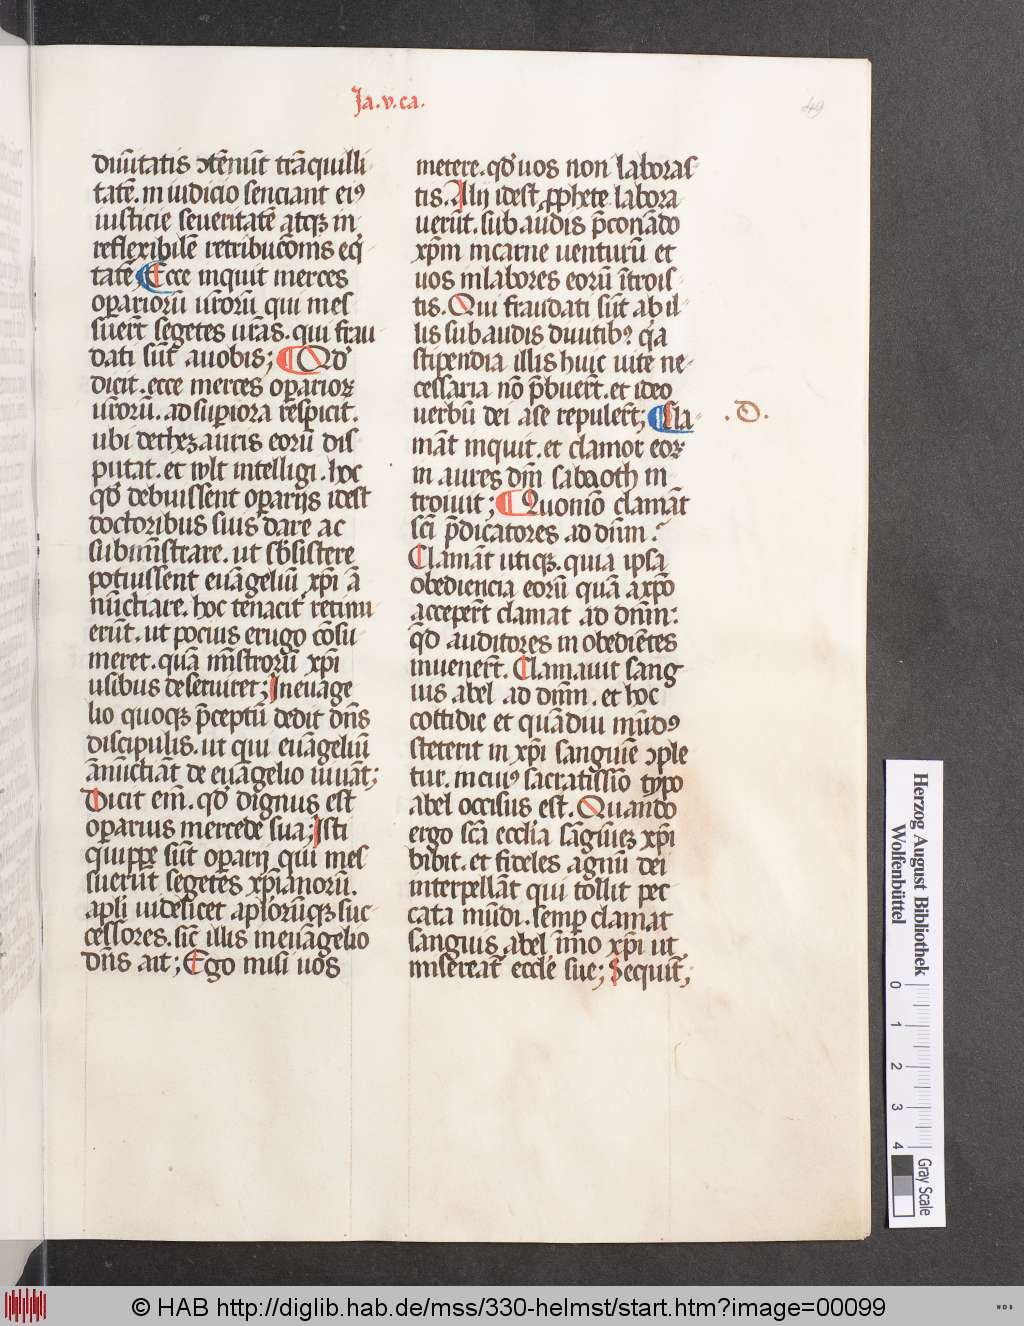 Ja.v.ca.
49
diuītatis ↄtēnūt trāquilli
tatē. in iudicio senciant eiꝰ
iusticie seueritatē atqꝫ in
reflexibilē retribucōnis eq̄
tatē; Ecce inquit merces
oꝑarioꝛū urōrū qui mes
suer̄t segetes urās. qui frau
dati sūt a uobis; Qđ
dicit. ecce merces oꝑarioꝝ
urōrū. ad suꝑiora respicit.
ubi de thezauris eorū dis
putat. et wlt intelligi. hoc
qđ debuissent oꝑarijs idest
doctoribus suis dare ac
subministrare. ut sb̄sistere
potuissent euāgeliū xp̄i ā
nūciare. hoc tenacit̄ retinu
erūt. ut pocius erugo cōsu
meret. quā mīstrorū xp̄i
usibus deseruiret; In euāge
lio quoqꝫ p̄ceptū dedit dn̄s
discipulis. ut qui euāgeliū
ānūciāt de euāgelio uiuāt;
Dicit em̄. qđ dignus est
oꝑarius mercede sua; Isti
quippe sūt oꝑarij qui mes
suerūt segetes xp̄ianorū.
apl̄i uidelicet apl̄orūqꝫ suc
cessores. sic̄ illis in euāgelio
dn̄s ait; Ego misi uos
metere. qđ uos non laboras
tis. Alij idest ꝓphete labora
uerūt. subaudis p̄conādo
xp̄m in carne uenturū et
uos in labores eorū ītrois
tis. Qui fraudati sūt ab il
lis subaudis diuitibꝰ. q̄a
stipendia illis huic uite ne
cessaria nō p̄buer̄t. et ideo
uerbū dei a se repuler̄t; Cla
.D.
māt inquit. et clamor eoꝝ
in aures dn̄i sabaoth in
troiuit; Quomō clamāt
sc̄i p̄dicatores ad dn̄m?
Clamāt utiqꝫ. quia ipsa
obediencia eorū quā a xp̄o
acceper̄t clamat ad dn̄m:
qđ auditores inobediētes
inuener̄t. Clamauit sang
uis abel ad dn̄m. et hoc
cottidie et quādiu mūdꝰ
steterit in xp̄i sanguīe ↄple
tur. in cuiꝰ sacratissīo typo
abel occisus est. Quando
ergo sc̄a eccl̄ia sāguīeꝫ xp̄i
bibit. et fideles agnū dei
interpellāt qui tollit pec
cata mūdi. semꝑ clamat
sanguis abel īmo xp̄i ut
misereat̄ eccl̄e sue; Sequit̄;
Herzog August Bibliothek
Wolfenbüttel
0 1 2 3 4
Gray Scale
© HAB http://diglib.hab.de/mss/330-helmst/start.htm?image=00099